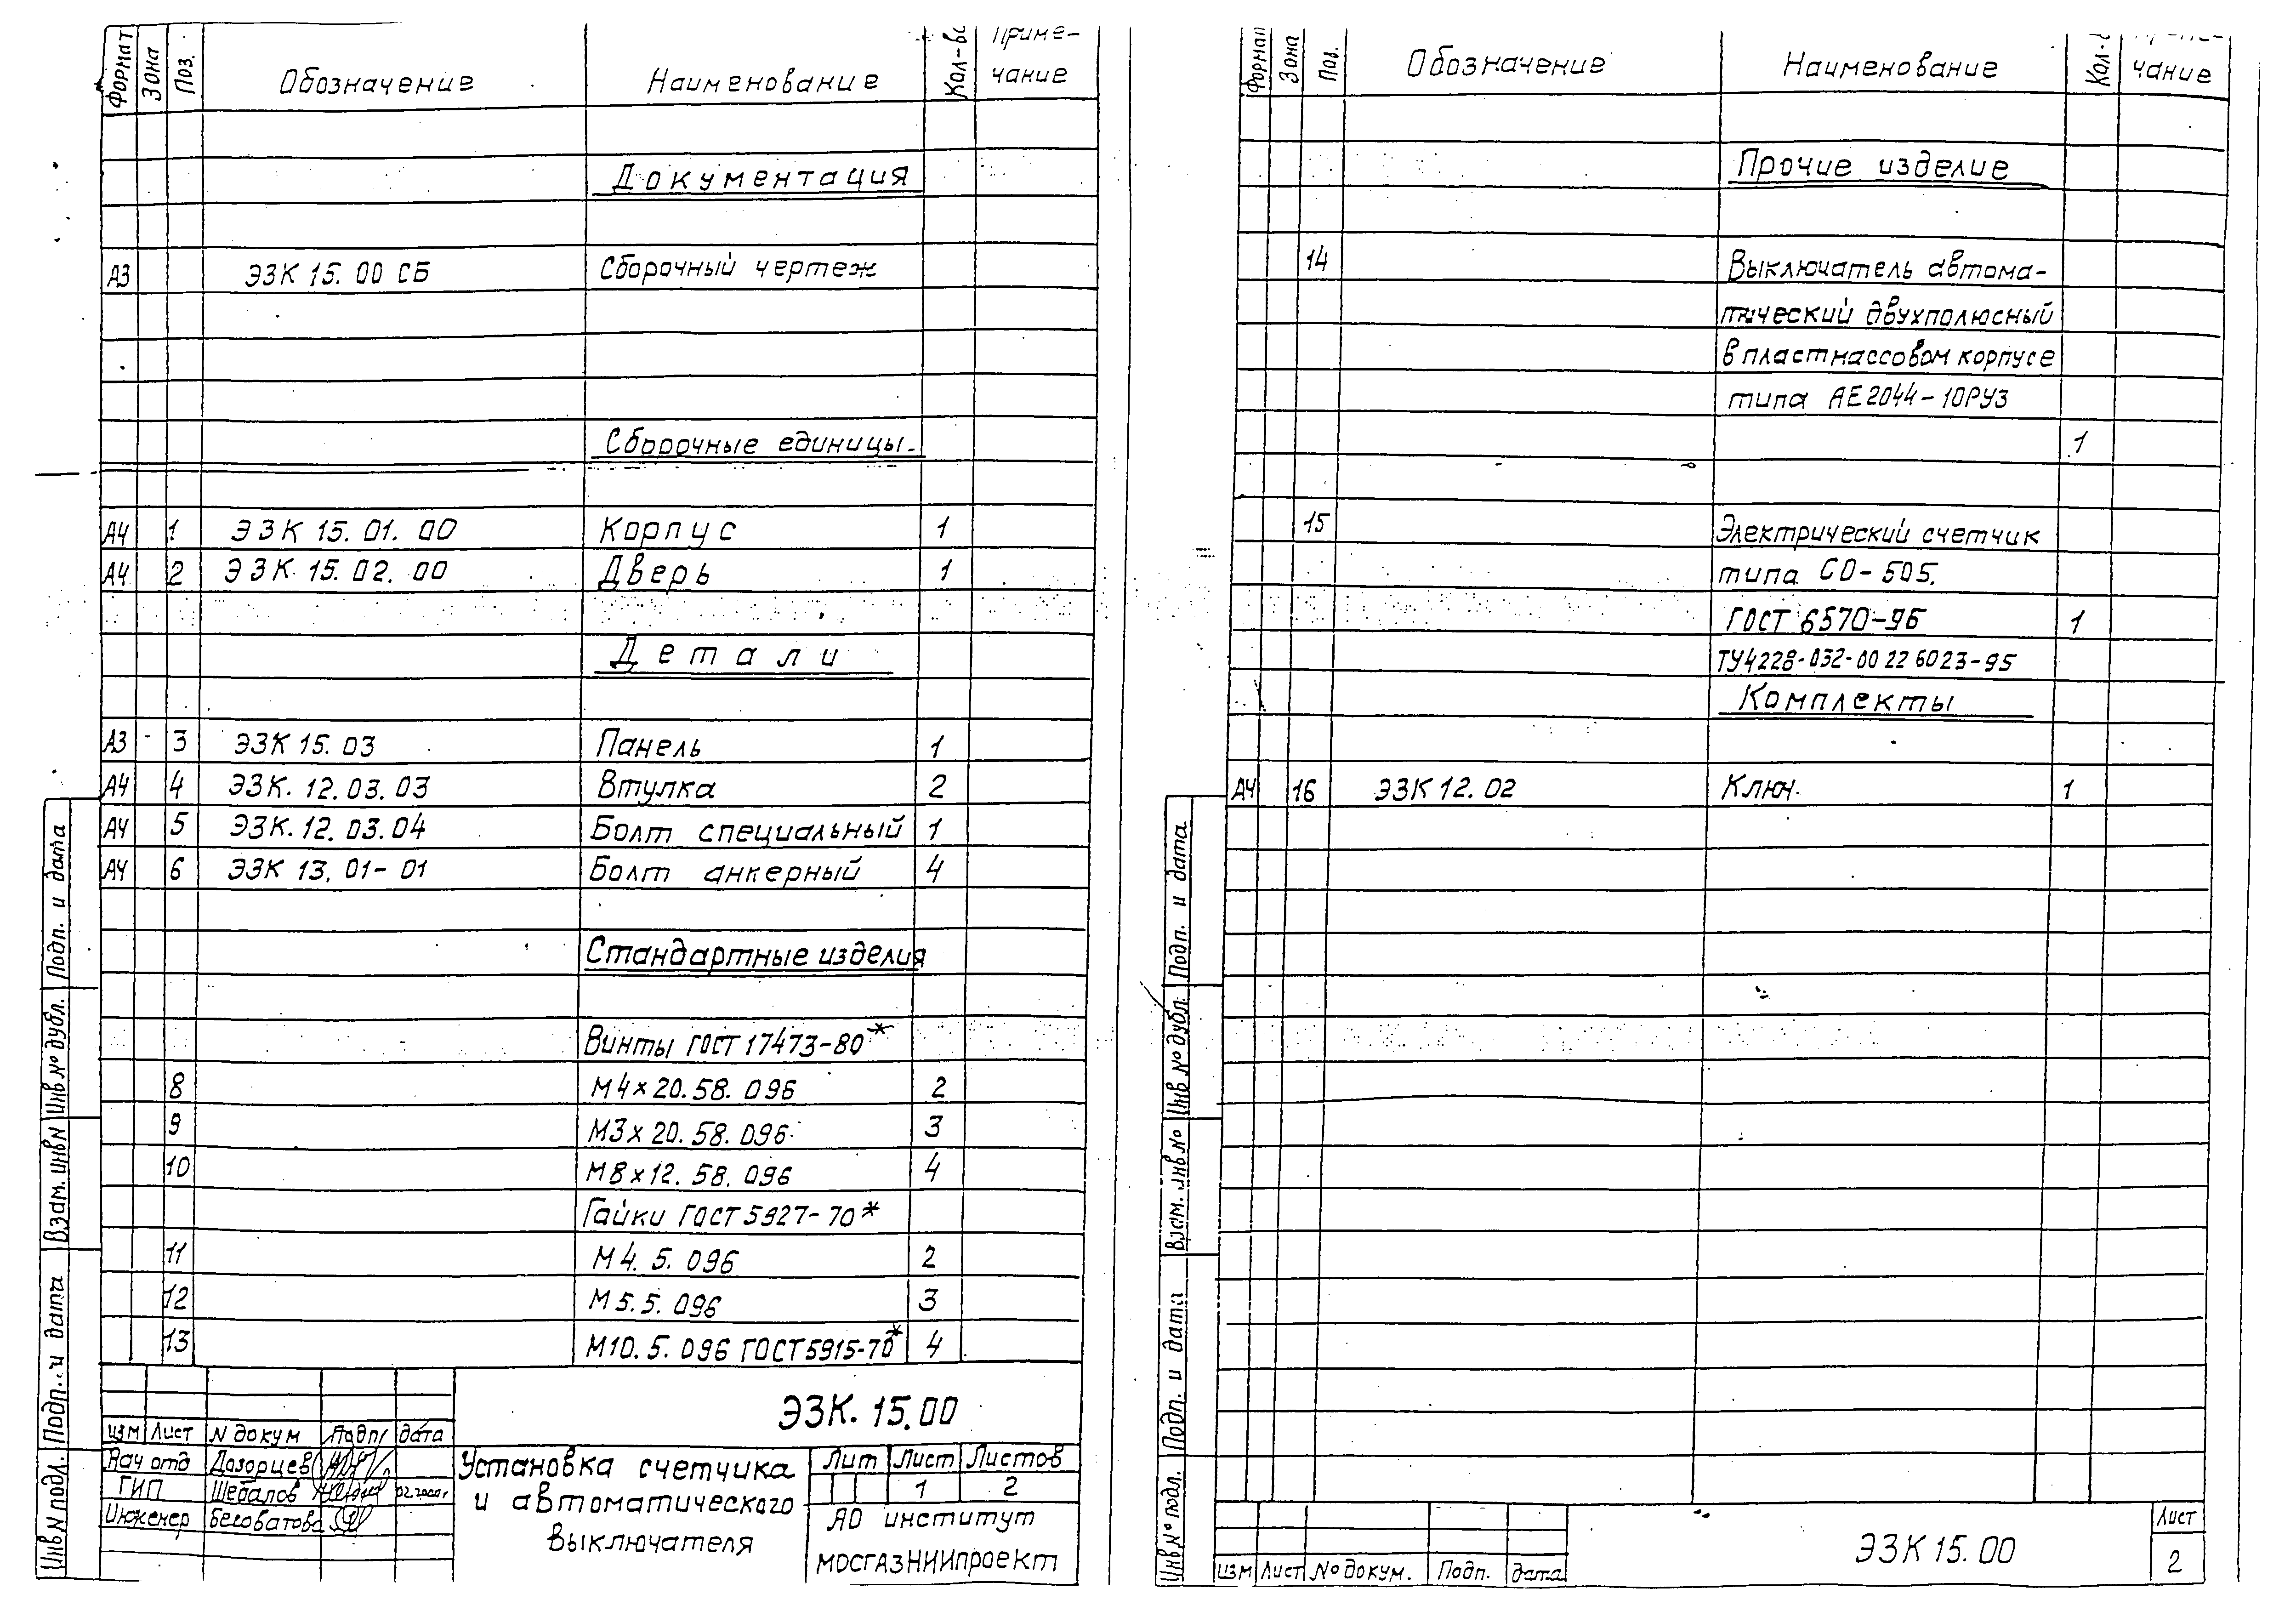 Формат Зона Поз. Обозначение Наименование Кол-во Приме-
чание
Документация
А3 ЭЗК 15.00 СБ Сборочный чертеж
Сборочные единицы.
А4 1 ЭЗК 15.01.00 Корпус 1
А4 2 ЭЗК 15.02.00 Дверь 1
Детали
А3 3 ЭЗК 15.03 Панель 1
А4 4 ЭЗК.12.03.03 Втулка 2
А4 5 ЭЗК.12.03.04 Болт специальный 1
А4 6 ЭЗК 13.01-01 Болт анкерный 4
Стандартные изделия
Винты ГОСТ 17473-80*
8 М4х20.58.096 2
9 М3х20.58.096 3
10 М8х12.58.096 4
Гайки ГОСТ 5927-70*
11 М4.5.096 2
12 М5.5.096 3
13 М10.5.096 ГОСТ 5915-70* 4
Инв N подл. Подп. и дата Взам. инв N Инв № дубл. Подп. и дата
ЭЗК.15.00
изм Лист N докум Подп дата
Нач отд Дозорцев
ГИП Шебалов 02.2000г.
Инженер Беловатова
Установка счетчика
и автоматического
выключателя
Лит Лист Листов
1 2
АО институт
МОСГАЗНИИпроект
Формат Зона Поз. Обозначение Наименование Кол-в
чание
Прочие изделие
14 Выключатель автома-
тический двухполюсный
в пластмассовом корпусе
типа АЕ2044-10РУЗ
1
15 Электрический счетчик
типа СО-505.
ГОСТ 6570-96 1
ТУ4228-032-00226023-95
Комплекты
А4 16 ЭЗК 12.02 Ключ. 1
Инв № подл. Подп. и дата Взам. инв № Инв № дубл. Подп. и дата
изм Лист № докум. Подп. дата
ЭЗК 15.00
Лист
2